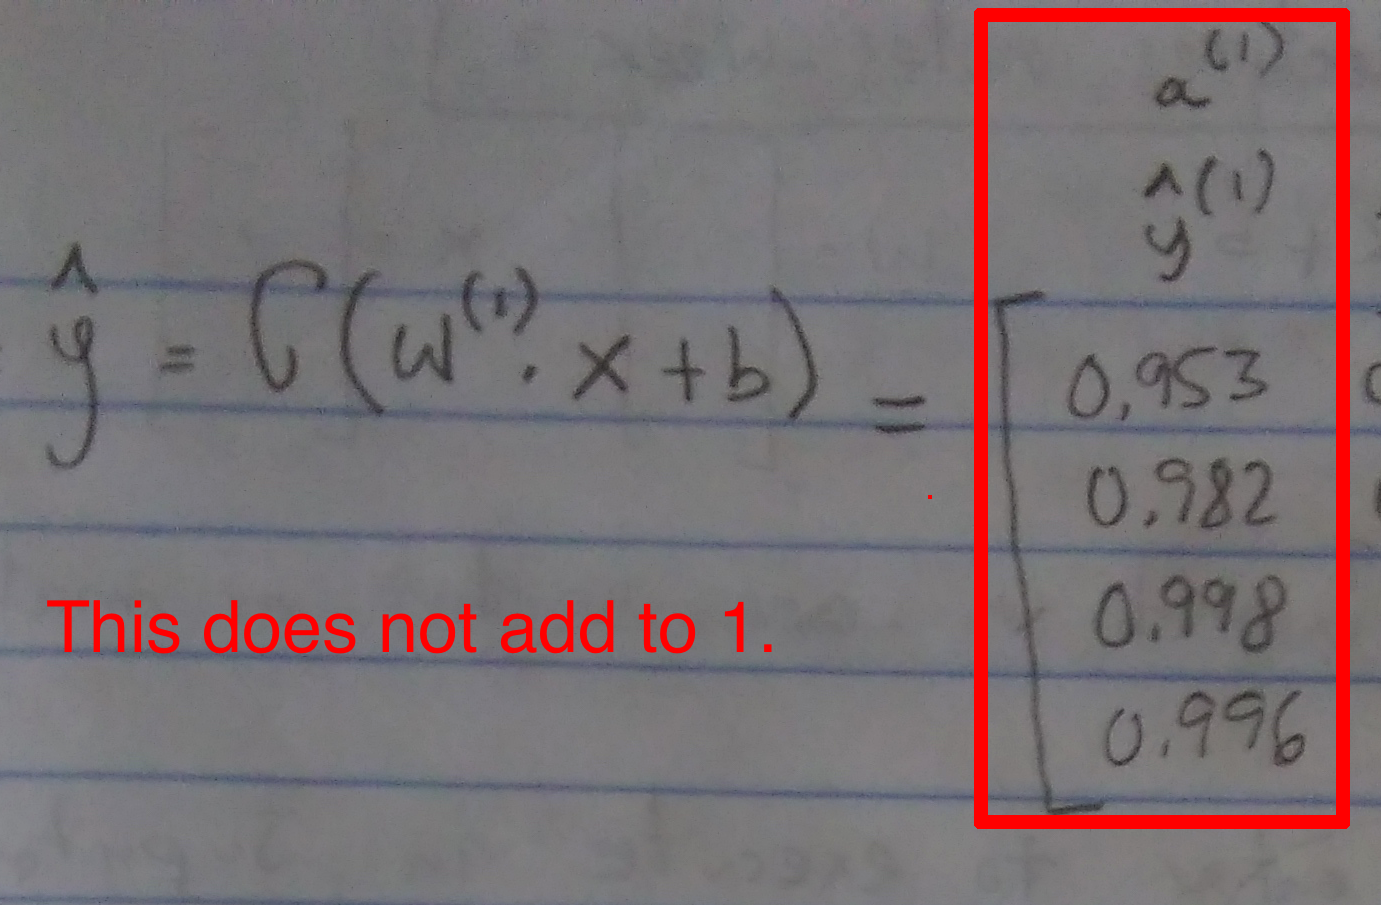 a^(1)
ŷ^(1)
ŷ = σ(w^(1) · x + b) =
0.953
0.982
0.998
0.996
This does not add to 1.